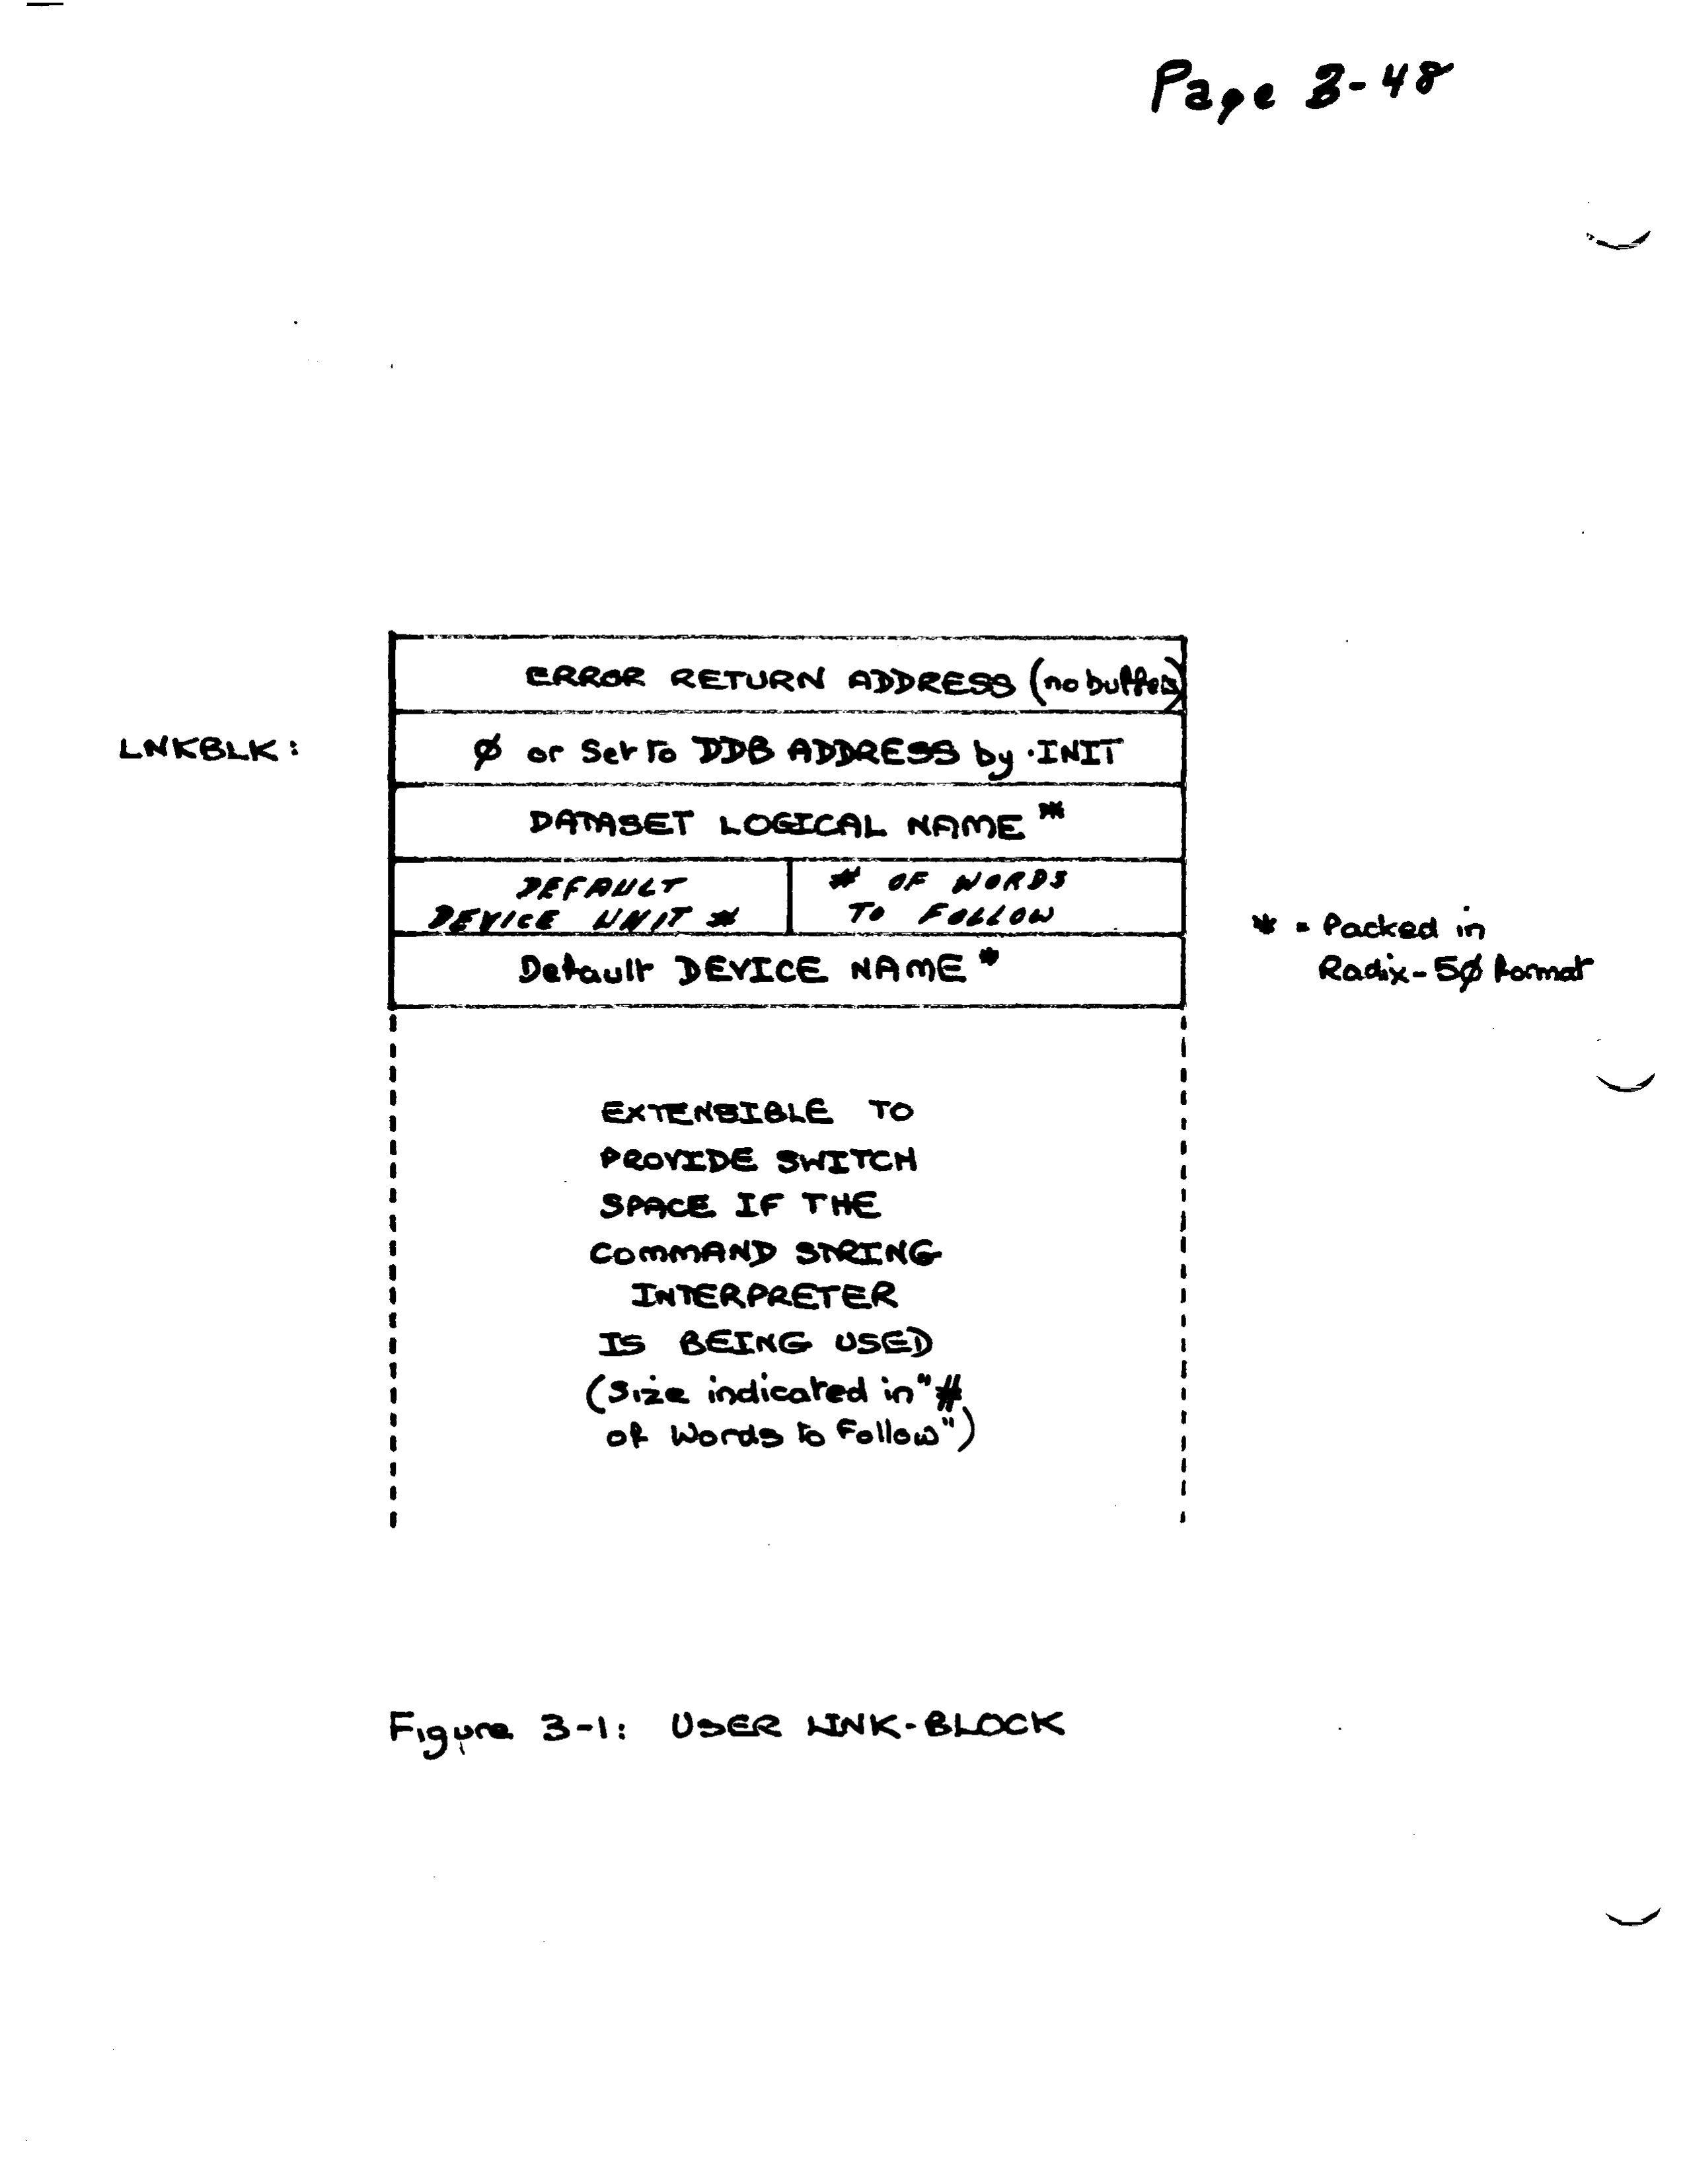 Page 3-48
ERROR RETURN ADDRESS (no buffers)
LNKBLK:
Ø or Set To DDB ADDRESS by .INIT
DATASET LOGICAL NAME *
DEFAULT
DEVICE UNIT #
# OF WORDS
TO FOLLOW
Default DEVICE NAME *
* = Packed in
Radix-5Ø format
EXTENSIBLE TO
PROVIDE SWITCH
SPACE IF THE
COMMAND STRING
INTERPRETER
IS BEING USED
(Size indicated in "#
of Words to Follow")
Figure 3-1: USER LINK-BLOCK